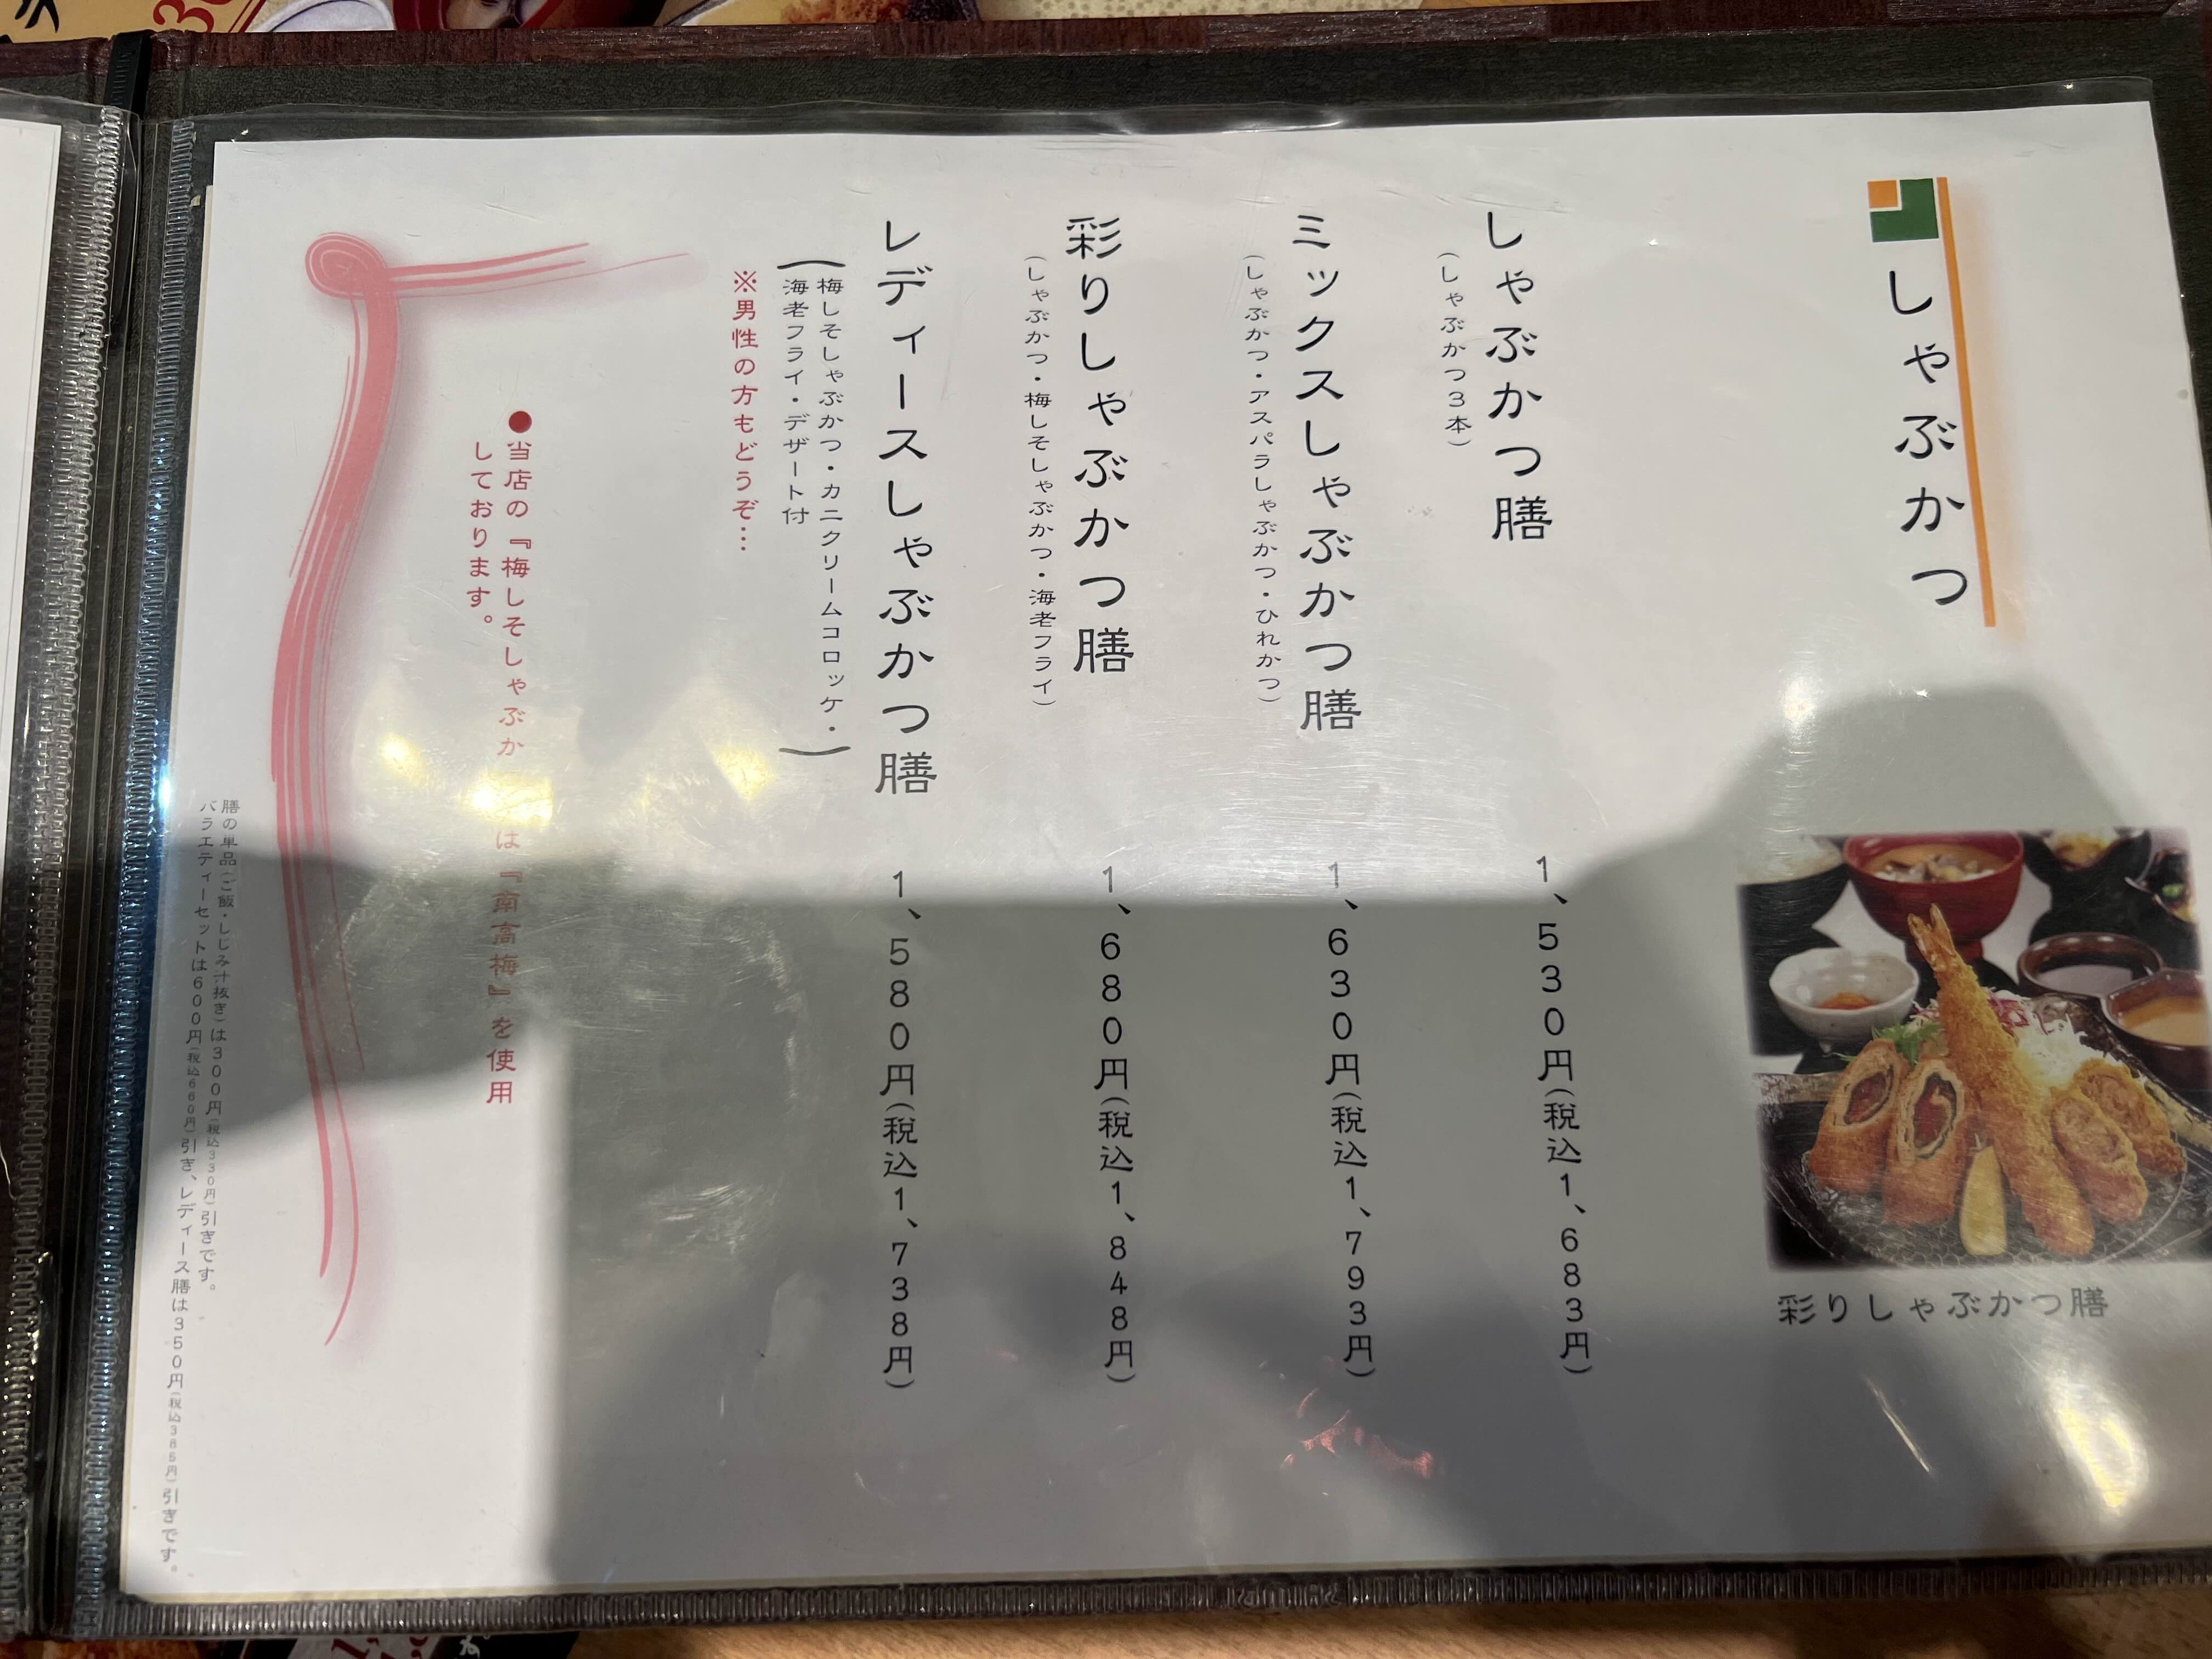 しゃぶかつ
彩りしゃぶかつ膳
しゃぶかつ膳
(しゃぶかつ3本)
1、530円(税込1、683円)
ミックスしゃぶかつ膳
(しゃぶかつ・アスパラしゃぶかつ・ひれかつ)
1、630円(税込1、793円)
彩りしゃぶかつ膳
(しゃぶかつ・梅しそしゃぶかつ・海老フライ)
1、680円(税込1、848円)
レディースしゃぶかつ膳
(梅しそしゃぶかつ・カニクリームコロッケ・
海老フライ・デザート付)
1、580円(税込1、738円)
※男性の方もどうぞ…
●当店の『梅しそしゃぶか は『南高梅』を使用
しております。
膳の単品(ご飯・しじみ汁抜き)は300円(税込330円)引きです。
バラエティーセットは600円(税込660円)引き、レディース膳は350円(税込385円)引きです。